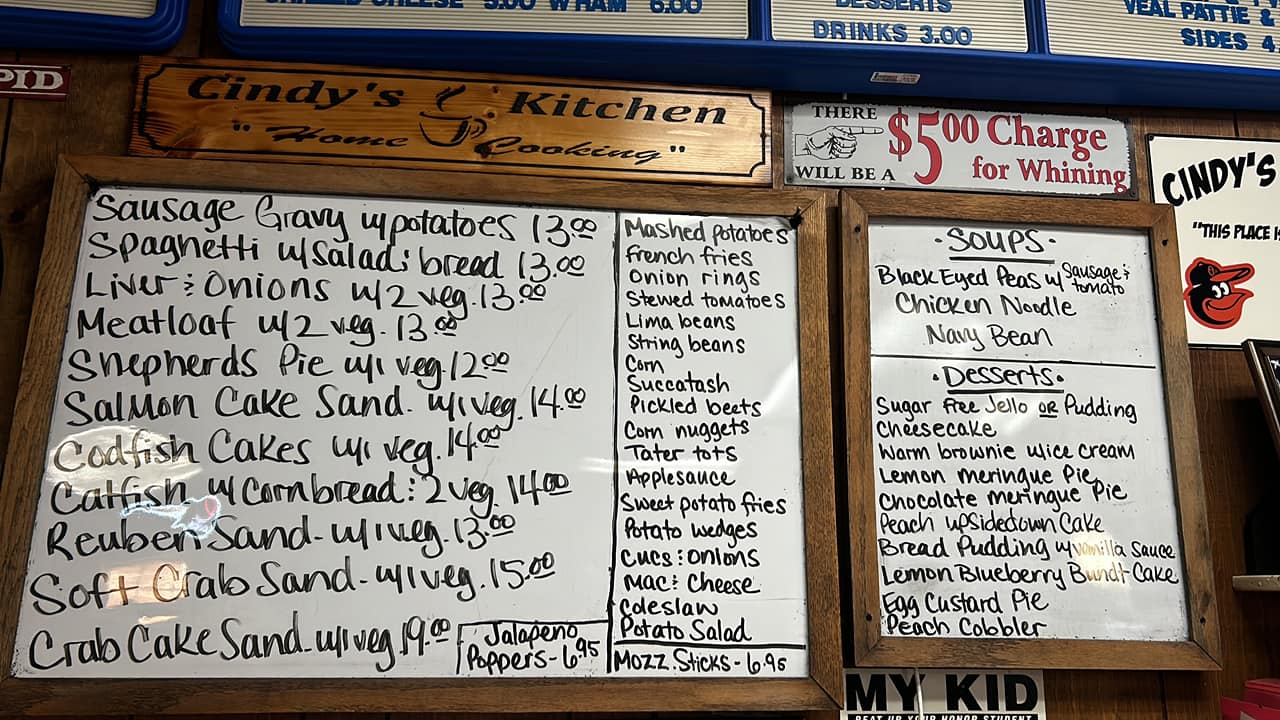 DESSERTS
DRINKS 3.00
VEAL PATTIE &
SIDES
PID
Cindy's Kitchen
"Home Cooking"
THERE
WILL BE A
$5.00 Charge
for Whining
CINDY'S
"THIS PLACE
Sausage Gravy w/potatoes 13.00
Spaghetti w/Salad & bread 13.00
Liver & Onions w/2 veg. 13.00
Meatloaf w/2 veg. 13.00
Shepherds Pie w/1 veg. 12.00
Salmon Cake Sand. w/1 veg. 14.00
Codfish Cakes w/1 veg. 14.00
Catfish w/Cornbread & 2 veg. 14.00
Reuben Sand. w/1 veg. 13.00
Soft Crab Sand. w/1 veg. 15.00
Crab Cake Sand. w/1 veg. 19.00
Jalapeno
Poppers - 6.95
Mashed potatoes
French fries
Onion rings
Stewed tomatoes
Lima beans
String beans
Corn
Succatash
Pickled beets
Corn nuggets
Tater tots
Applesauce
Sweet potato fries
Potato wedges
Cucs & onions
Mac & Cheese
Coleslaw
Potato Salad
Mozz. Sticks - 6.95
Soups
Black Eyed Peas w/ Sausage & tomato
Chicken Noodle
Navy Bean
Desserts
Sugar free Jello or Pudding
Cheesecake
Warm brownie w/ice cream
Lemon meringue Pie
Chocolate meringue Pie
Peach upsidedown Cake
Bread Pudding w/vanilla Sauce
Lemon Blueberry Bundt Cake
Egg Custard Pie
Peach Cobbler
MY KID
BEAT UP YOUR HONOR STUDENT